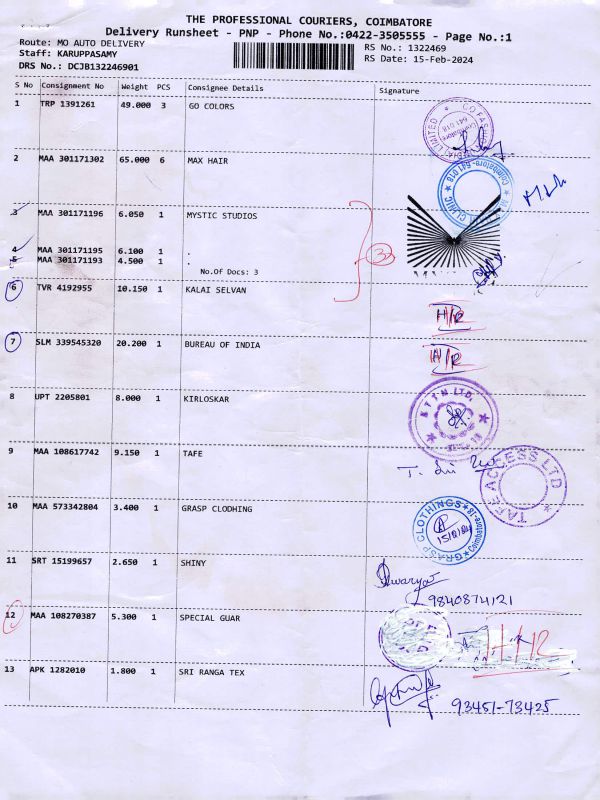 THE PROFESSIONAL COURIERS, COIMBATORE
Delivery Runsheet - PNP - Phone No.:0422-3505555 - Page No.:1
Route: MO AUTO DELIVERY
RS No.: 1322469
Staff: KARUPPASAMY
RS Date: 15-Feb-2024
DRS No.: DCJB132246901
S No Consignment No Weight PCS Consignee Details Signature
1 TRP 1391261 49.000 3 GO COLORS
GO FASHION INDIA LIMITED
Coimbatore 641 018
2 MAA 301171302 65.000 6 MAX HAIR
CLINIC Coimbatore-641 018
3 MAA 301171196 6.050 1 MYSTIC STUDIOS
4 MAA 301171195 6.100 1 .
5 MAA 301171193 4.500 1 .
No.Of Docs: 3
3
6 TVR 4192955 10.150 1 KALAI SELVAN
H/R
7 SLM 339545320 20.200 1 BUREAU OF INDIA
H/R
8 UPT 2205801 8.000 1 KIRLOSKAR
9 MAA 108617742 9.150 1 TAFE
TAFE ACCESS LTD
10 MAA 573342804 3.400 1 GRASP CLODHING
GRASP CLOTHINGS Coimbatore-18
11 SRT 15199657 2.650 1 SHINY
9840874121
12 MAA 108270387 5.300 1 SPECIAL GUAR
13 APK 1282010 1.800 1 SRI RANGA TEX
93451-73425